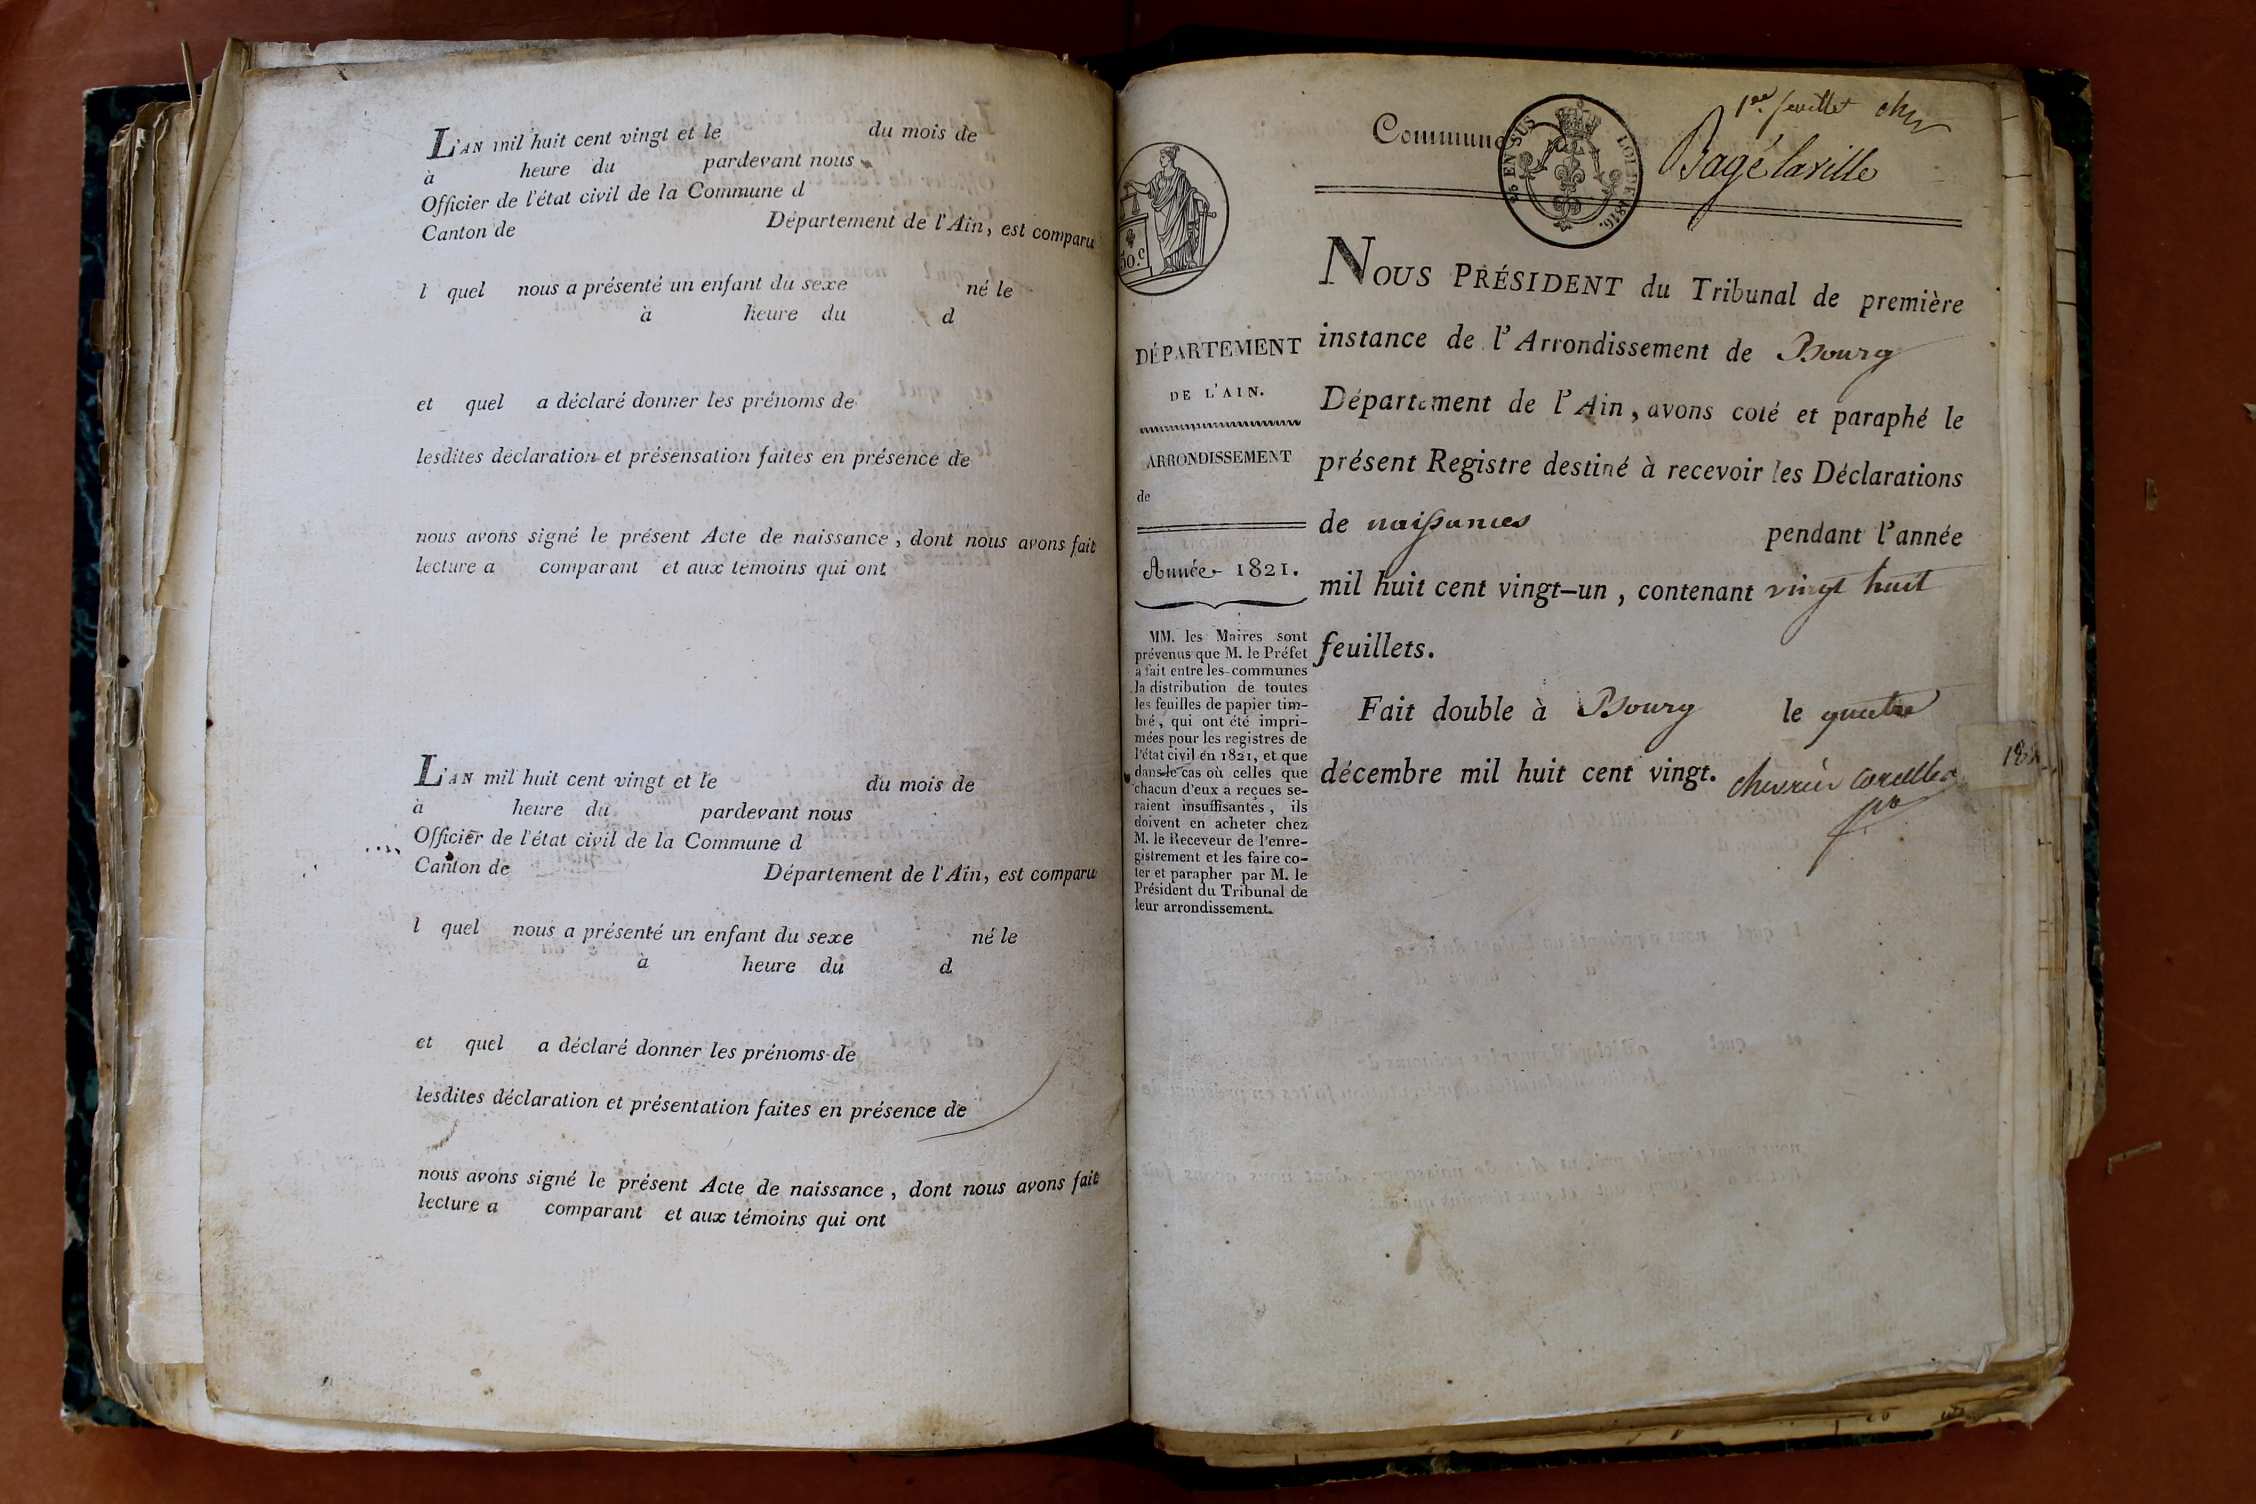 L'AN mil huit cent vingt et le du mois de
à heure du pardevant nous
Officier de l'état civil de la Commune d
Canton de Département de l'Ain, est comparu
l quel nous a présenté un enfant du sexe né le
à heure du d
et quel a déclaré donner les prénoms de
lesdites déclaration et présensation faites en présence de
nous avons signé le présent Acte de naissance, dont nous avons fait
lecture a comparant et aux témoins qui ont
L'AN mil huit cent vingt et le du mois de
à heure du pardevant nous
Officier de l'état civil de la Commune d
Canton de Département de l'Ain, est comparu
l quel nous a présenté un enfant du sexe né le
à heure du d
et quel a déclaré donner les prénoms de
lesdites déclaration et présentation faites en présence de
nous avons signé le présent Acte de naissance, dont nous avons fait
lecture a comparant et aux témoins qui ont
1er feuillet
Commune Bagé la ville
EN SUS LOI DE 1816.
50.c
DÉPARTEMENT
DE L'AIN.
ARRONDISSEMENT
de
Année 1821.
MM. les Maires sont
prévenus que M. le Préfet
a fait entre les communes
la distribution de toutes
les feuilles de papier tim-
bré, qui ont été impri-
mées pour les registres de
l'état civil en 1821, et que
dans le cas où celles que
chacun d'eux a reçues se-
raient insuffisantes, ils
doivent en acheter chez
M. le Receveur de l'enre-
gistrement et les faire co-
ter et parapher par M. le
Président du Tribunal de
leur arrondissement.
NOUS PRÉSIDENT du Tribunal de première
instance de l'Arrondissement de Bourg
Département de l'Ain, avons coté et paraphé le
présent Registre destiné à recevoir les Déclarations
de naissances pendant l'année
mil huit cent vingt-un, contenant vingt huit
feuillets.
Fait double à Bourg le quatre
décembre mil huit cent vingt.